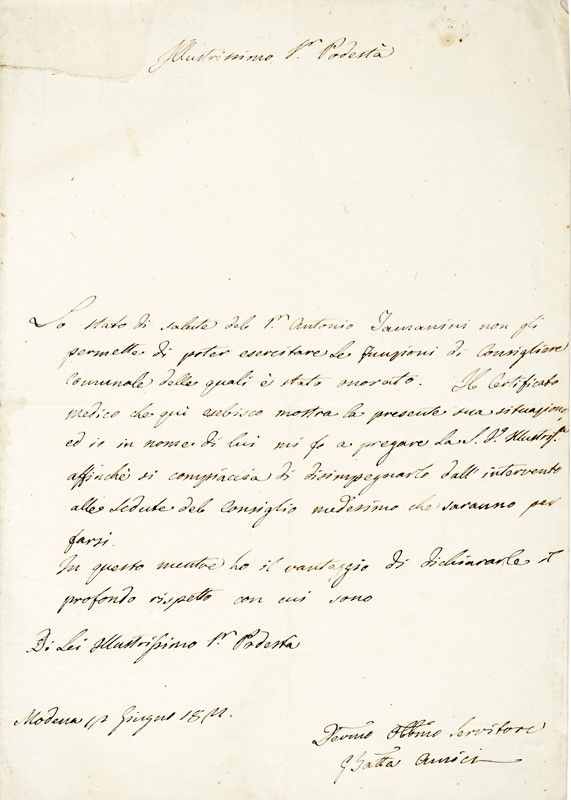 Illustrissimo Sr. Podestà
Lo stato di salute del Sr. Antonio non gli
permette di poter esercitare le funzioni di Consigliere
Comunale delle quali è stato onorato. Il Certificato
medico che qui esebisco mostra la presente sua situazione
ed io in nome di lui mi fo a pregare la S. Va. Illustrissa.
affinchè si compiaccia di disimpegnarlo dall' intervento
alle sedute del Consiglio medesimo che saranno per
farsi.
In questo mentre ho il vantaggio di dichiararle il
profondo rispetto con cui sono
Di Lei Illustrissimo Sr. Podestà
Modena Giugno
Devmo Obbmo Servitore
G Batta Amici